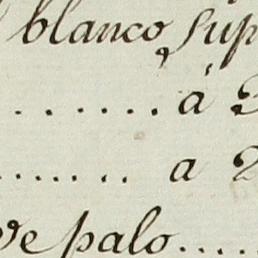 blanco, sup
........ á 2
....... a 2
de palo.....